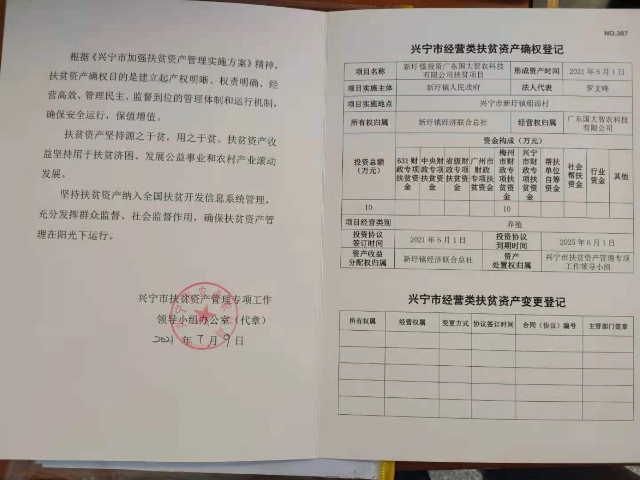 根据《兴宁市加强扶贫资产管理实施方案》精神，
扶贫资产确权目的是建立起产权明晰、权责明确、经
营高效、管理民主、监督到位的管理体制和运行机制，
确保安全运行，保值增值。
扶贫资产坚持源之于贫，用之于贫。扶贫资产收
益坚持用于扶贫济困、发展公益事业和农村产业滚动
发展。
坚持扶贫资产纳入全国扶贫开发信息系统管理，
充分发挥群众监督、社会监督作用，确保扶贫资产管理
在阳光下运行。
兴宁市扶贫资产管理专项工作
领导小组办公室（代章）
2021 年 7 月 9 日
NO.387
兴宁市经营类扶贫资产确权登记
项目名称 新圩镇投资广东国大智农科技有限公司扶贫项目 形成资产时间 2021年6月1日
项目实施主体 新圩镇人民政府 法人代表 罗文峰
项目实施地点 兴宁市新圩镇船添村
所有权归属 新圩镇经济联合总社 经营权归属 广东国大智农科技有限公司
投资总额（万元） 资金构成（万元）
631财政专项扶贫资金 中央财政专项扶贫资金 省级财政专项扶贫资金 广州市财政专项扶贫资金 梅州市财政专项扶贫资金 兴宁市财政专项扶贫资金 帮扶单位自筹资金 社会帮扶资金 行业资金 其他
10 10
项目经营类别 养殖
投资协议签订时间 2021年6月1日 投资协议到期时间 2025年6月1日
资产收益分配权归属 新圩镇经济联合总社 资产处置权归属 兴宁市扶贫资产管理专项工作领导小组
兴宁市经营类扶贫资产变更登记
所有权属 经营权属 变更方式 协议签订时间 合同（协议）编号 主管部门签章